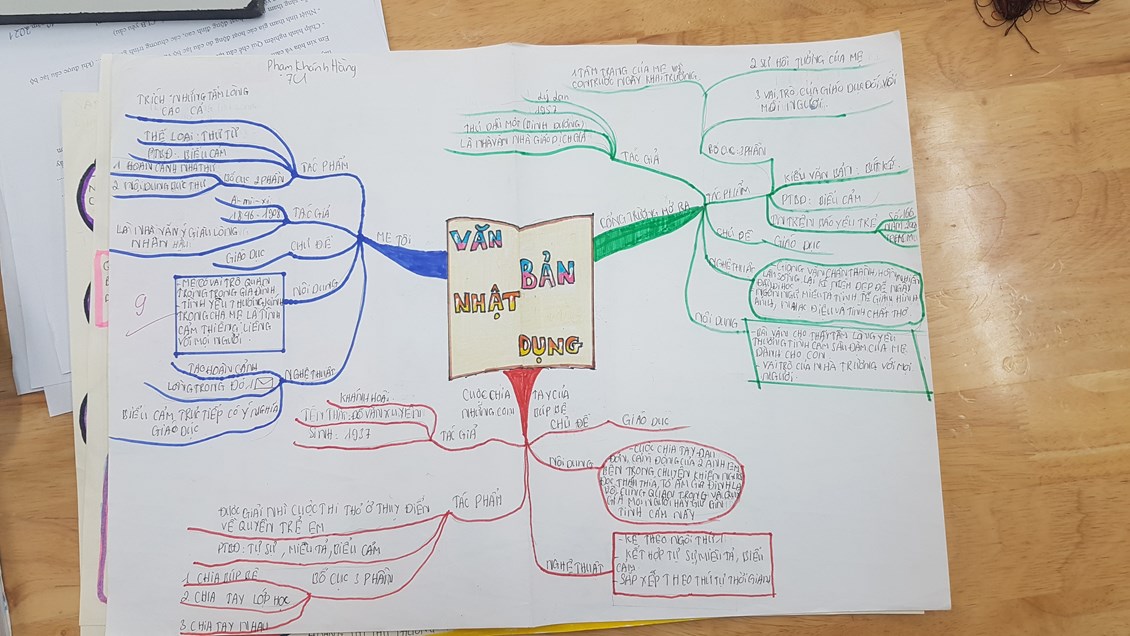 Phạm Khánh Hằng
7C1
VĂN
BẢN
NHẬT
DỤNG
MẸ TÔI
TÁC PHẨM
TRÍCH "NHỮNG TẤM LÒNG
CAO CẢ
THỂ LOẠI: THƯ TỪ
PTBĐ: BIỂU CẢM
BỐ CỤC 2 PHẦN
1. HOÀN CẢNH NHẬ THƯ
2. NỘI DUNG BỨC THƯ
TÁC GIẢ
A-mi-xi
1846-1908
LÀ NHÀ VĂN Ý GIÀU LÒNG
NHÂN HẬU
CHỦ ĐỀ
GIÁO DỤC
NỘI DUNG
- MẸ CÓ VAI TRÒ QUAN
TRỌNG TRONG GIA ĐÌNH
- TÌNH YÊU THƯƠNG, KÍNH
TRỌNG CHA MẸ LÀ TÌNH
CẢM THIÊNG LIÊNG
VỚI MỌI NGƯỜI
9
NGHỆ THUẬT
TẠO HOÀN CẢNH
LỒNG TRONG ĐÓ 1
BIỂU CẢM TRỰC TIẾP CÓ Ý NGHĨA
GIÁO DỤC
CỔNG TRƯỜNG MỞ RA
TÁC GIẢ
Lý Lan
1957
THỦ DẦU MỘT (BÌNH DƯƠNG)
LÀ NHÀ VĂN NHÀ GIÁO DỊCH GIẢ
TÁC PHẨM
BỐ CỤC: 3 PHẦN
1 TÂM TRẠNG CỦA MẸ VÀ
CON TRƯỚC NGÀY KHAI TRƯỜNG
2 SỰ HỒI TƯỞNG CỦA MẸ
3 VAI TRÒ CỦA GIÁO DỤC ĐỐI VỚI
MỖI NGƯỜI
KIỂU VĂN BẢN: BÚT KÍ
PTBĐ: BIỂU CẢM
IN TRÊN BÁO YÊU TRẺ
SỐ 166
CHỦ ĐỀ
GIÁO DỤC
NGHỆ THUẬT
- GIỌNG VĂN CHÂN THÀNH, HỒN NHIÊN
LÀM SỐNG LẠI KỈ NIỆM ĐẸP ĐẼ NGÀY
ĐẦU ĐI HỌC
NGÔN NGỮ MIÊU TẢ TINH TẾ GIÀU HÌNH
ẢNH, NHẠC ĐIỆU VÀ TÍNH CHẤT THƠ
NỘI DUNG
- BÀI VĂN CHO THẤY TẤM LÒNG YÊU
THƯƠNG TÌNH CẢM SÂU ĐẬM CỦA MẸ
DÀNH CHO CON
VAI TRÒ CỦA NHÀ TRƯỜNG VỚI MỖI
NGƯỜI
CUỘC CHIA TAY CỦA
NHỮNG CON BÚP BÊ
TÁC GIẢ
KHÁNH HOÀI
TÊN THẬT: ĐỖ VĂN XUYỀN
SINH: 1937
CHỦ ĐỀ
GIÁO DỤC
NỘI DUNG
- CUỘC CHIA TAY ĐAU
ĐỚN, CẢM ĐỘNG CỦA 2 ANH EM
BÊN TRONG CHUYỆN KHIẾN NGƯỜI
ĐỌC THẤM THÍA, TỔ ẤM GIA ĐÌNH LÀ
VÔ CÙNG QUAN TRỌNG VÀ QUÝ
GIÁ MỌI NGƯỜI HÃY GIỮ GÌN
TÌNH CẢM NÀY
TÁC PHẨM
ĐƯỢC GIẢI NHÌ CUỘC THI THƠ Ở THỤY ĐIỂN
VỀ QUYỀN TRẺ EM
PTBĐ: TỰ SỰ, MIÊU TẢ, BIỂU CẢM
BỐ CỤC 3 PHẦN
1 CHIA BÚP BÊ
2 CHIA TAY LỚP HỌC
3 CHIA TAY NHAU
NGHỆ THUẬT
- KỂ THEO NGÔI THỨ 1
- KẾT HỢP TỰ SỰ, MIÊU TẢ, BIỂU
CẢM
- SẮP XẾP THEO THỨ TỰ THỜI GIAN